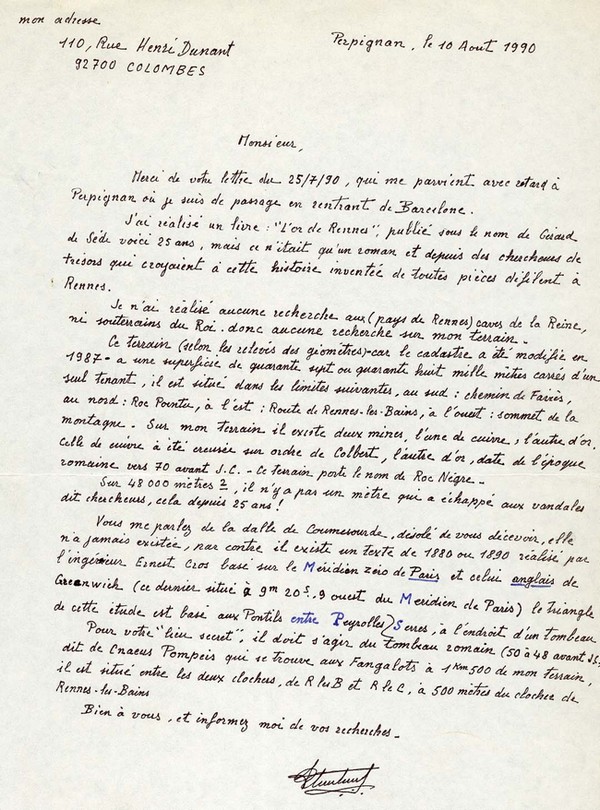 mon adresse
110, Rue Henri Dunant
92700 COLOMBES
Perpignan, le 10 Aout 1990
Monsieur,
Merci de votre lettre du 25/7/90, qui me parvient avec retard à
Perpignan où je suis de passage en rentrant de Barcelone.
J'ai réalisé un livre : "L'or de Rennes", publié sous le nom de Gérard
de Sède voici 25 ans, mais ce n'était qu'un roman et depuis des chercheurs de
trésors qui croyaient à cette histoire inventée de toutes pièces défilent à
Rennes.
Je n'ai réalisé aucune recherche aux (pays de Rennes) caves de la Reine,
ni souterrains du Roi. donc aucune recherche sur mon terrain -
Ce terrain (selon les relevés des géomètres)-car le cadastre a été modifié en
1987- a une superficie de quarante sept ou quarante huit mille mètres carrés d'un
seul tenant, il est situé dans les limites suivantes, au sud : chemin de Farxès,
au nord : Roc Pointu, à l'est : Route de Rennes-les-Bains, à l'ouest : sommet de la
montagne - Sur mon terrain il existe deux mines, l'une de cuivre ; l'autre d'or.
Celle de cuivre à été creusée sur ordre de Colbert, l'autre d'or, date de l'époque
romaine vers 70 avant J.C. - Ce terrain porte le nom de Roc Nègre -
Sur 48 000 mètres 2, il n'y a pas un mètre qui a échappé aux vandales
dit chercheurs, cela depuis 25 ans !
Vous me parlez de la dalle de Coumesourde, désolé de vous décevoir, elle
n'a jamais existée, par contre il existe un texte de 1880 ou 1890 réalisé par
l'ingénieur Ernest Cros basé sur le Méridien zéro de Paris et celui anglais de
Greenwich (ce dernier situé à 9m 20s.9 ouest du Meridien de Paris) le triangle
de cette étude est basé aux Pontils entre Peyrolles) Serres, à l'endroit d'un tombeau
Pour votre "lieu secret", il doit s'agir du tombeau romain (50 à 48 avant JC)
dit de Cnaeus Pompeis qui se trouve aux Fangalots à 1 Km 500 de mon terrain,
il est situé entre les deux clochers, de R les B et R le C, à 500 mètres du clocher de
Rennes-les-Bains
Bien à vous, et informez moi de vos recherches -